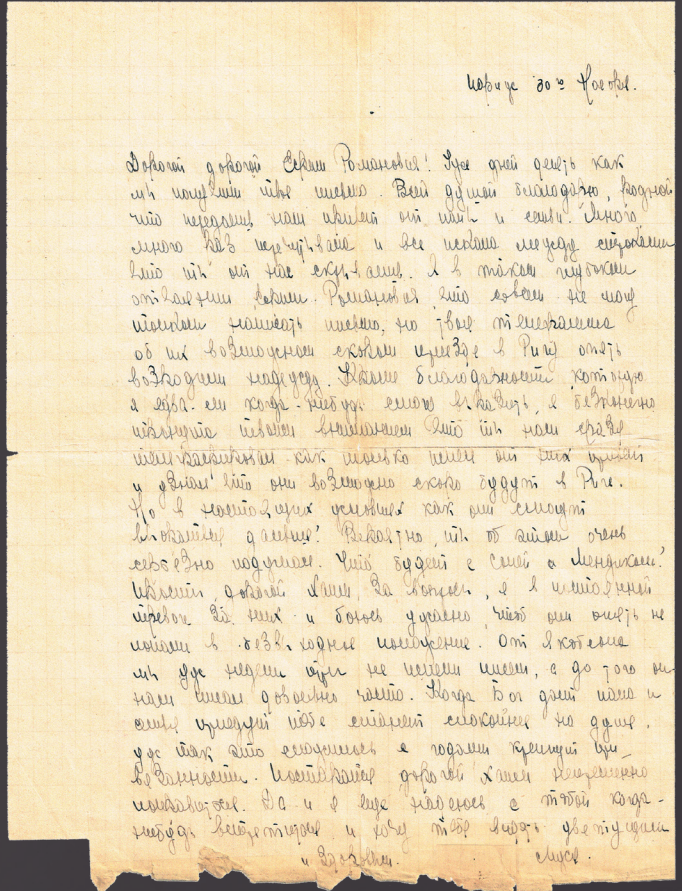 Париж 30го Ноября.
Дорогой дорогой Романович! Уже дней девять как
мы получили твое письмо. Всей душой благодарю, родной
что передаешь нам привет от папы и семьи. Много
много раз перечитывала и все искала между строками
что ты от нас скрываешь. Я в таком глубоком
отчаянии Романович что совсем не могу
толком написать письмо, но твоя телеграмма
об их возможном скором приезде в Ригу опять
возводит надежду. Кроме благодарности которую
я едва-ли когда-нибудь смогу выказать, я бесконечно
тронута твоим вниманием что ты нам сразу
телеграфировал как только имел от них привет
и узнал что они возможно скоро будут в Риге.
Но в настоящих условиях как они смогут
дальше? Вероятно, ты об этом очень
серьезно подумал. Что будет с Соней с
Прости, дорогой за вопросы, я в постоянной
тревоге за них и боюсь ужасно, чтоб они опять не
попали в безвыходное положение. От Якобсона
мы уже недели три не имели писем, а до того он
нам писал довольно часто. Когда Бог даст папа и
семья приедут тебе станет спокойнее на душе,
уж так это сложилось с годами крепнут при-
вязанности. Постарайся дорогой непременно
поправиться. Да и я еще надеюсь с тобой когда-
нибудь встретиться и хочу тебя видеть цветущим
и здоровым. Люся.